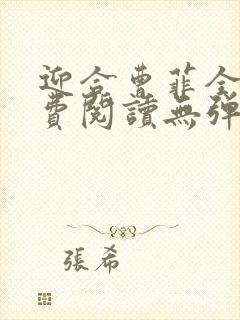 迎合曹菲全
費閱讀無彈
張希